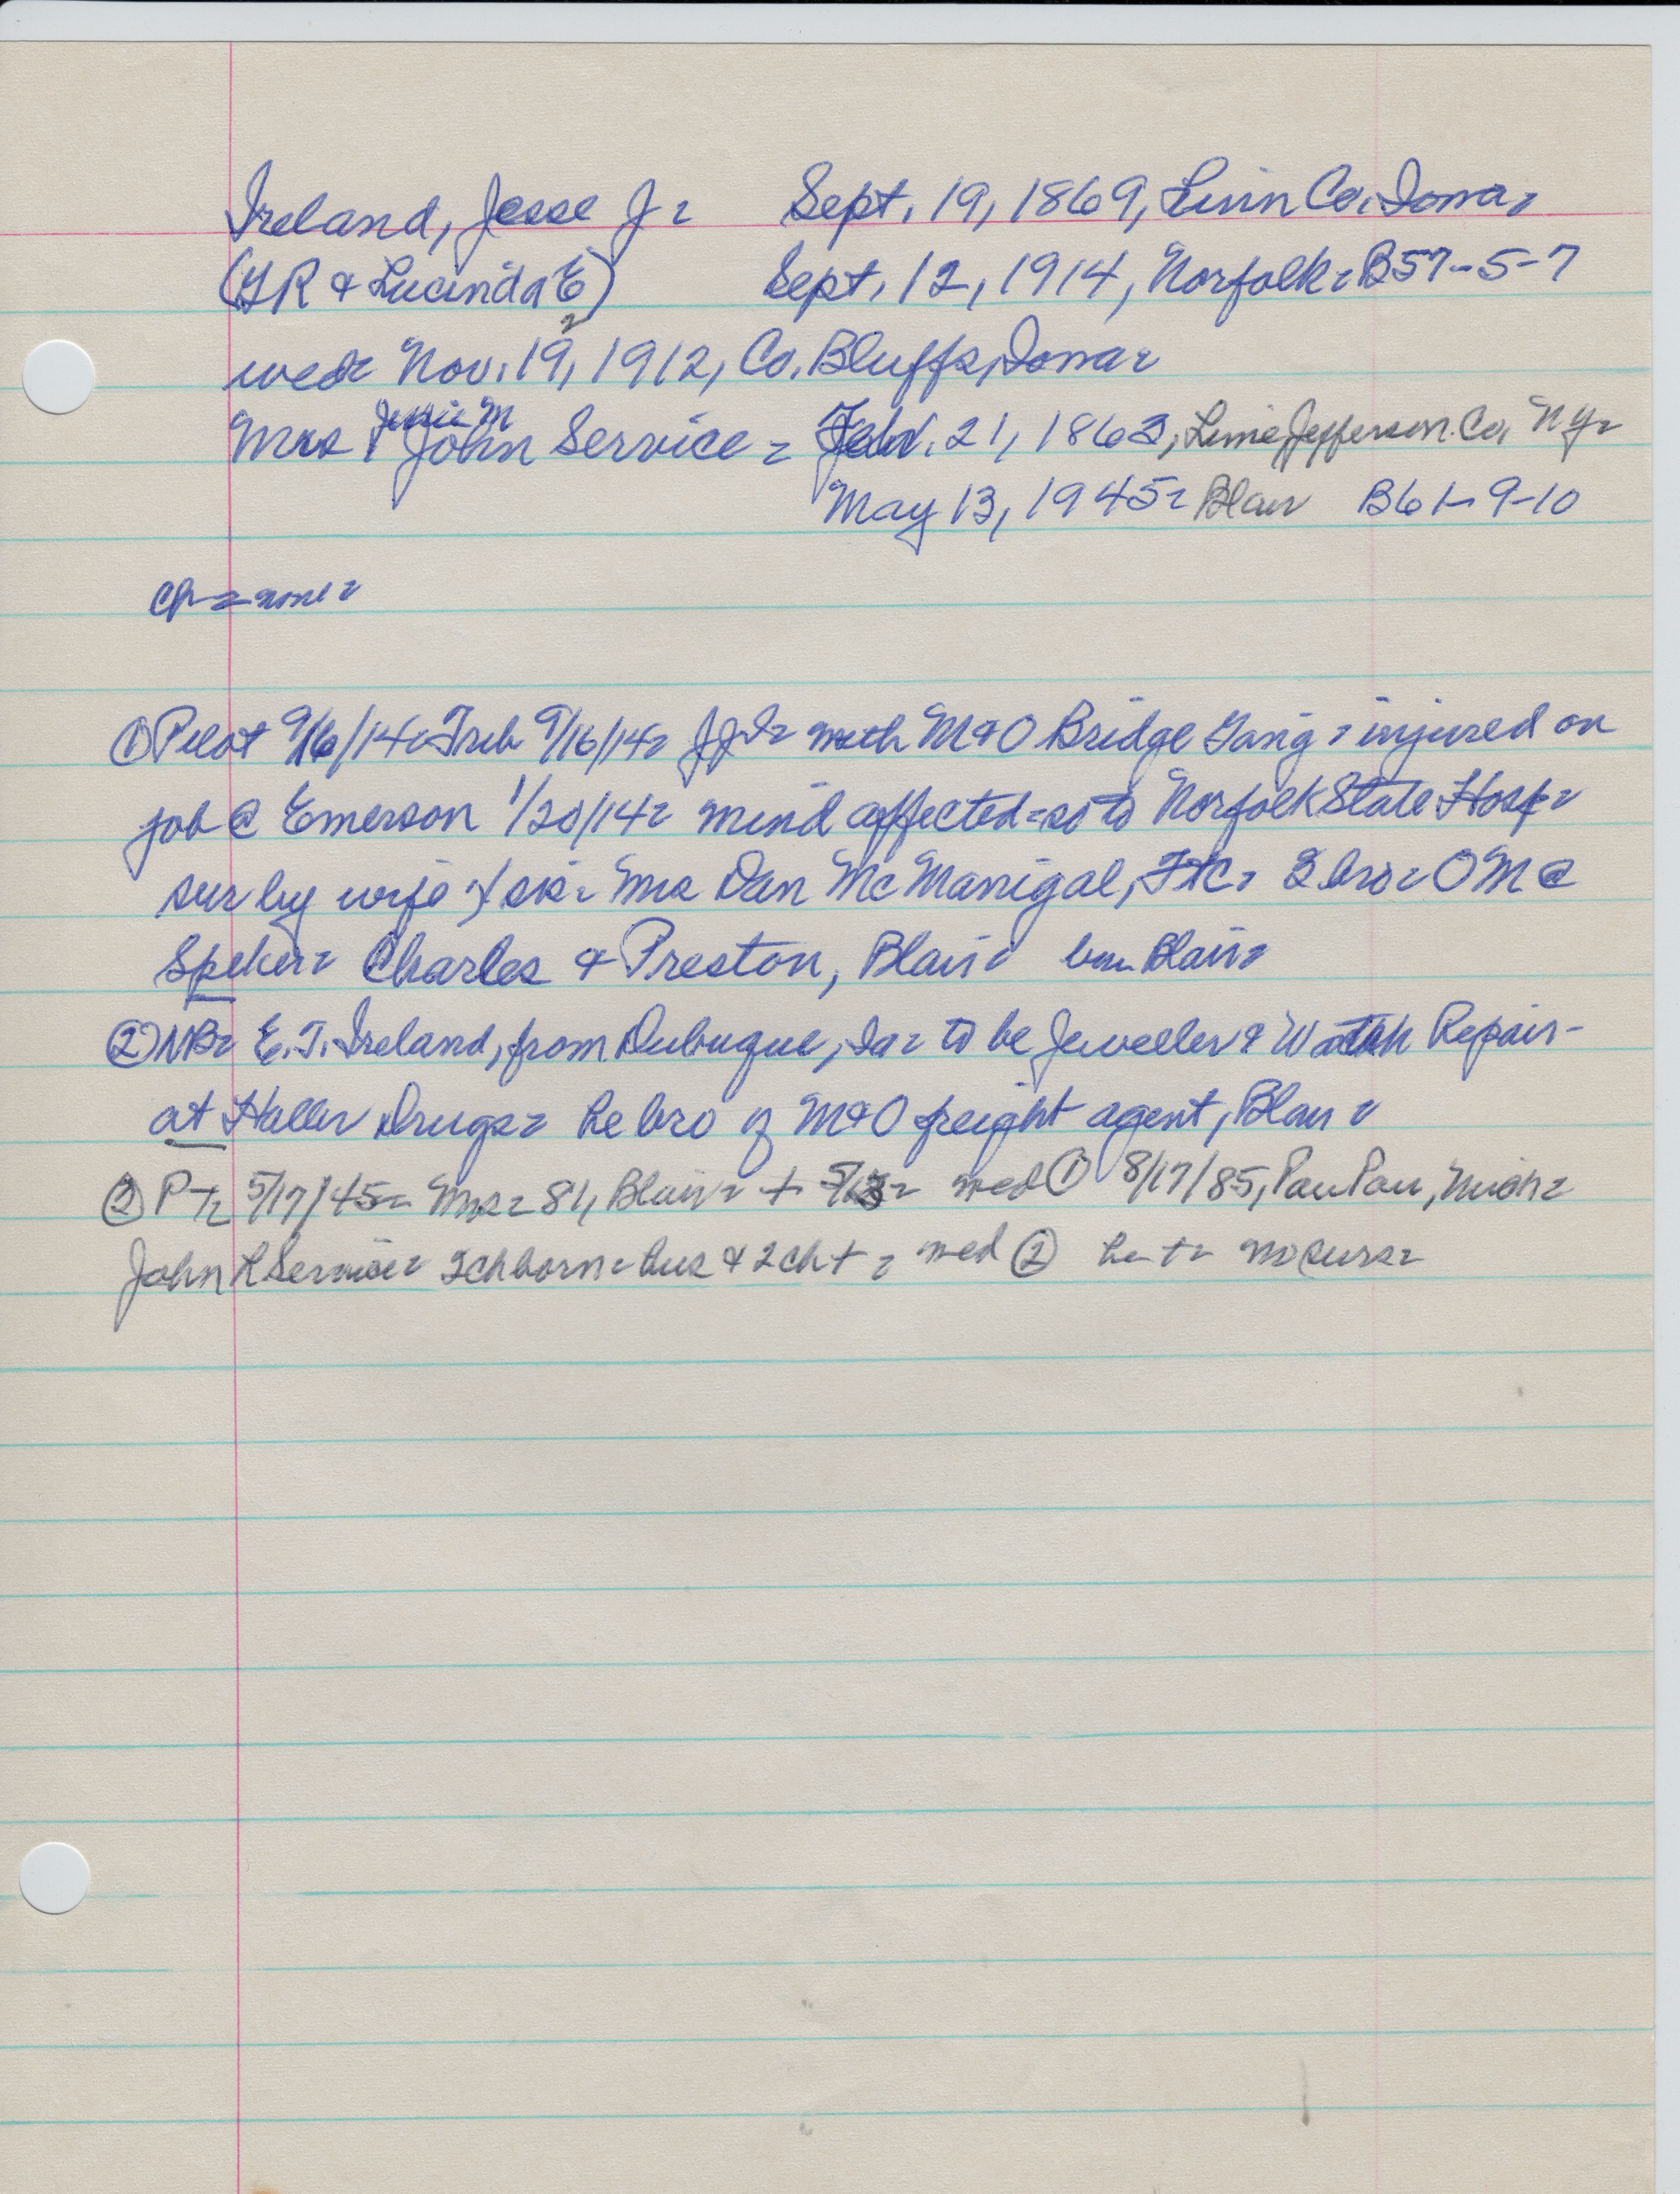 Ireland, Jesse J = Sept. 19, 1869, Linn Co. Iowa =
(GR & Lucinda E) Sept. 12, 1914, Norfolk = B57-5-7
2
wed = Nov. 19, 1912, Co. Bluffs, Iowa =
Jessie M
Mrs John Service = Feb. 21, 1863, Lime, Jefferson Co, NY =
May 13, 1945 = Blair B61-9-10
Ch = none =
① Pilot 9/16/14 = Trib 9/16/14 = JJI = with M&O Bridge Gang = injured on
job @ Emerson 1/20/14 = mind affected = so to Norfolk State Hosp =
sur by wife = sis = Mrs Dan McManigal, FtC = 3 bro = OM @
Charles & Preston, Blair = bur Blair =
② NB = E.T. Ireland, from Dubuque, Ia = to be Jeweller & Watch Repair -
at Haller Drugs = he bro of M&O freight agent, Blair =
③ PT = 5/17/45 = Mrs = 81, Blair = + 5/13 = wed ① 8/17/85, PawPaw, Mich =
John R Service = 2 ch born = hus & 2 ch + = wed ② he + = no surs =